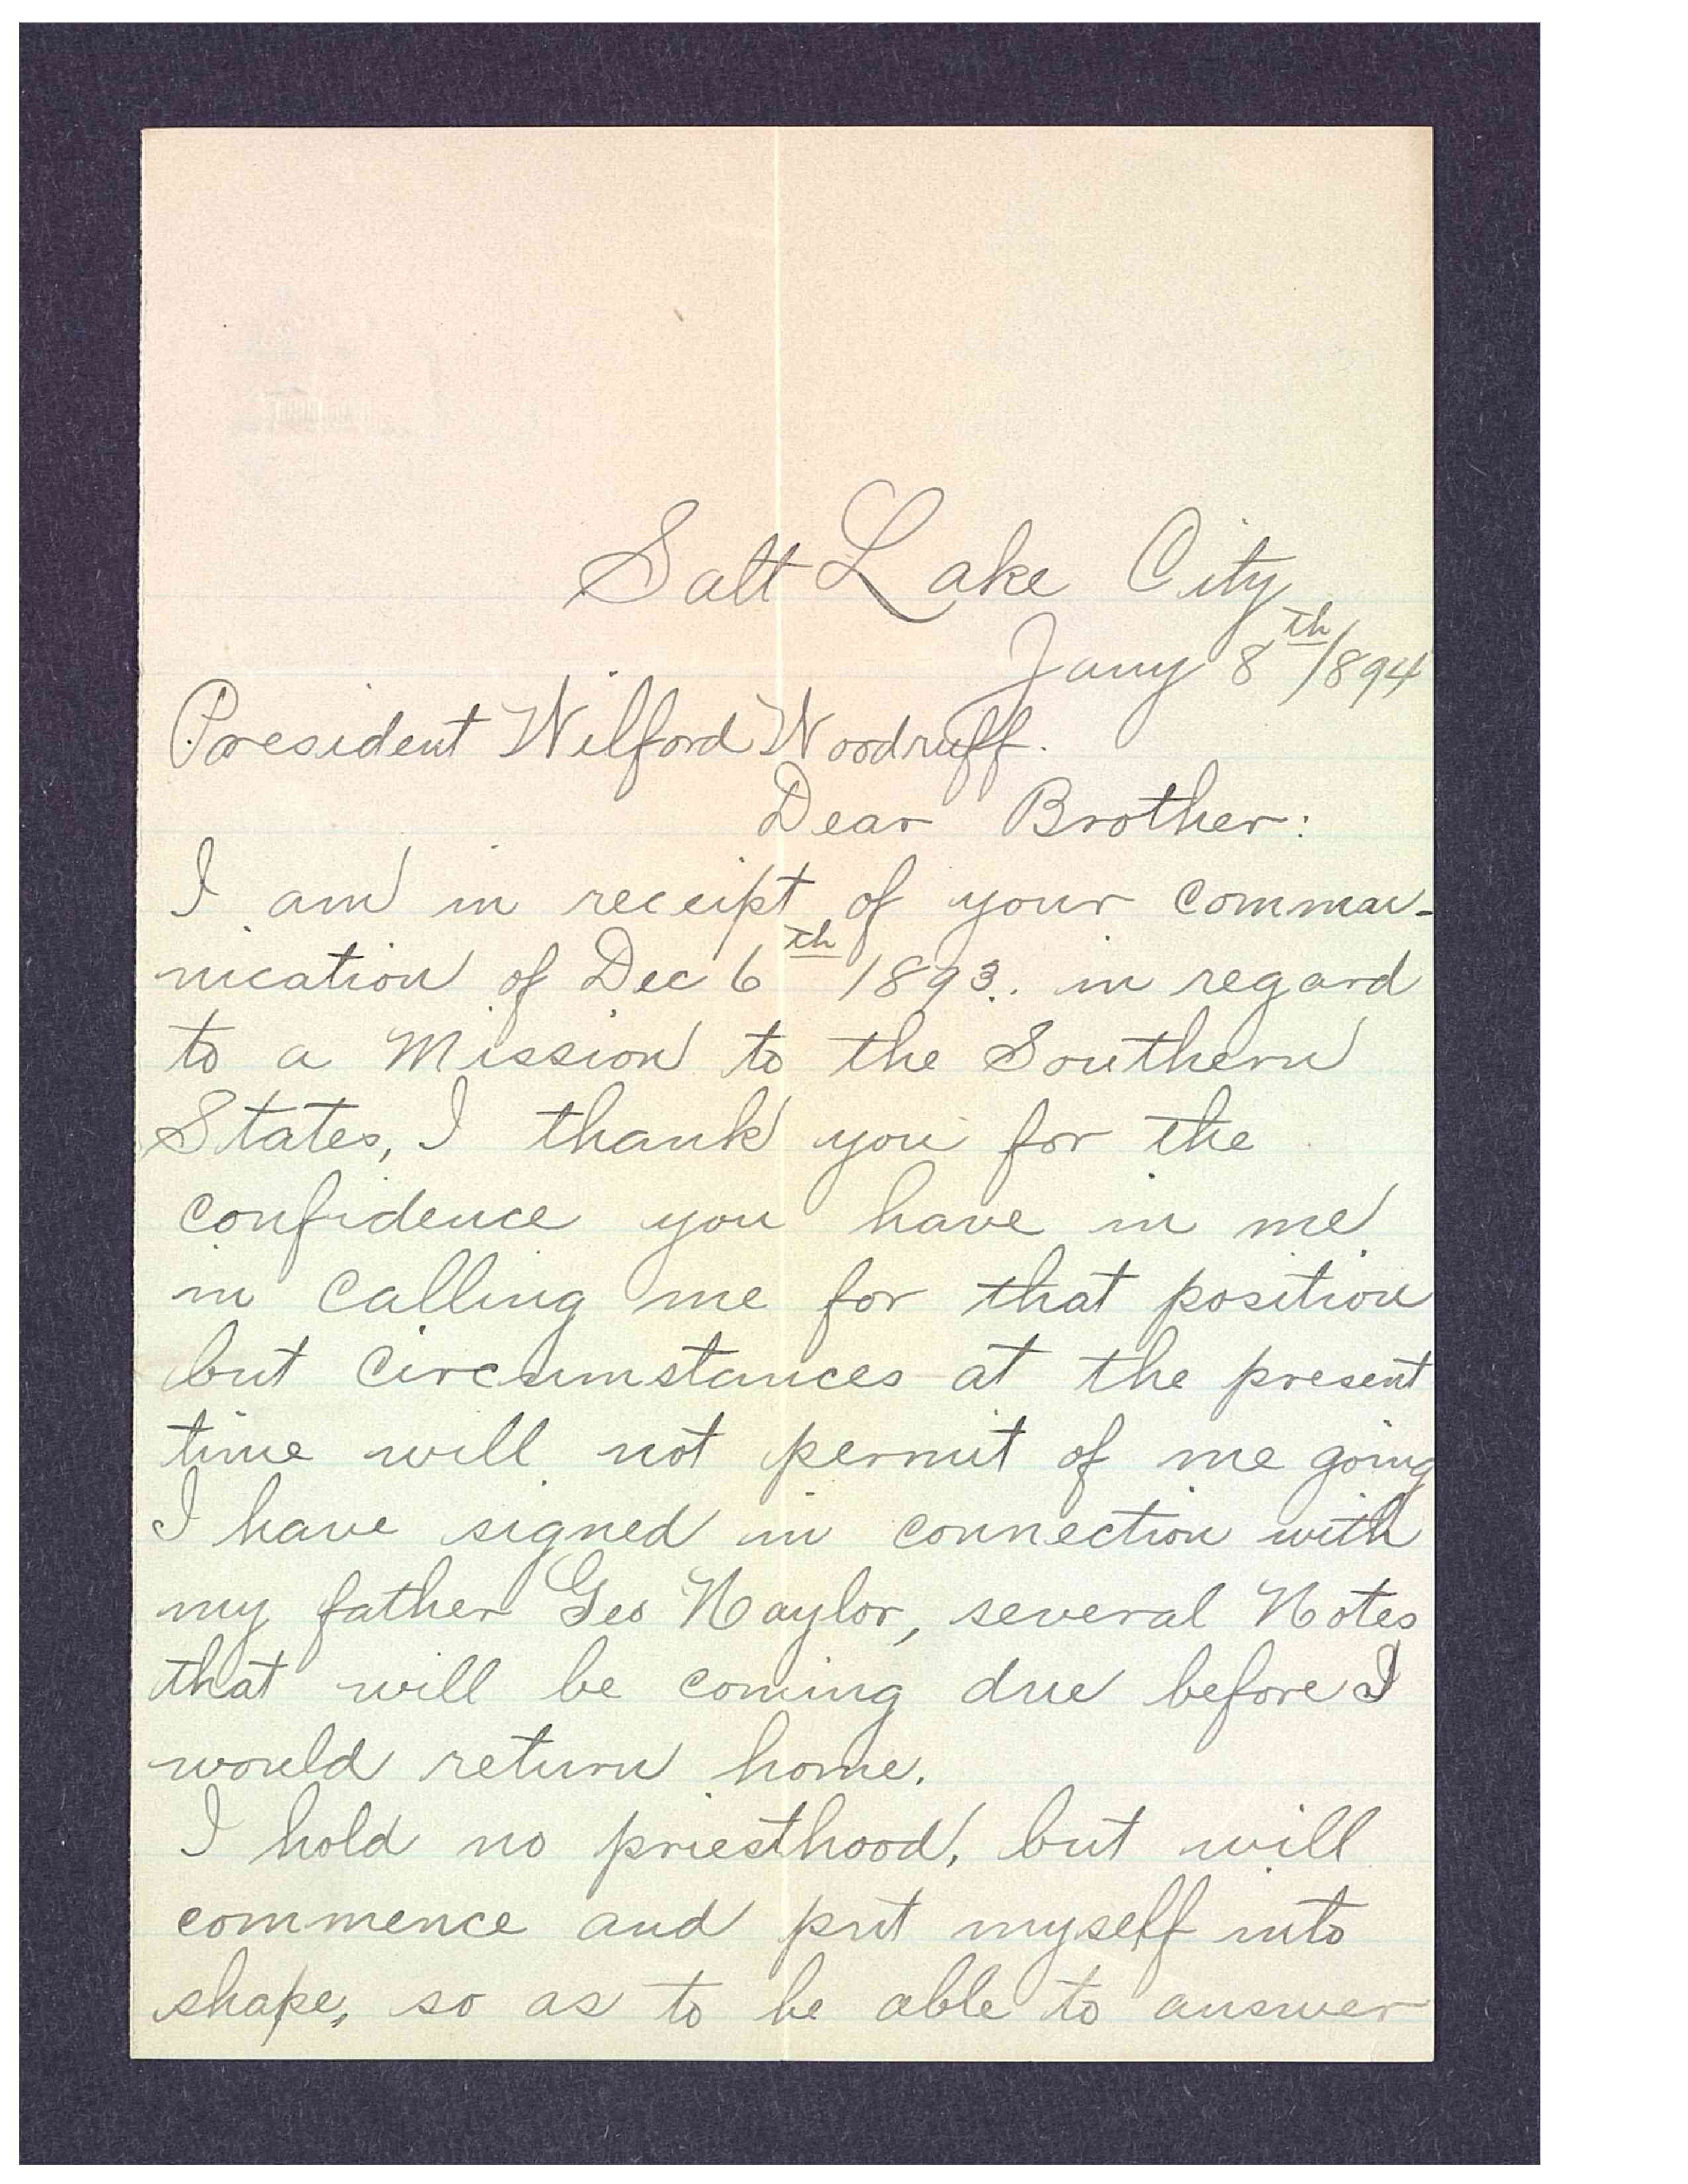 Salt Lake City
Jany 8th/894
President Wilford Woodruff.
Dear Brother:
I am in receipt of your commu-
nication of Dec 6th 1893. in regard
to a Mission to the Southern
States, I thank you for the
confidence you have in me
in calling me for that position
but circumstances at the present
time will not permit of me going
I have signed in connection with
my father Geo Naylor, several Notes
that will be coming due before I
would return home.
I hold no priesthood, but will
commence and put myself into
shape, so as to be able to answer